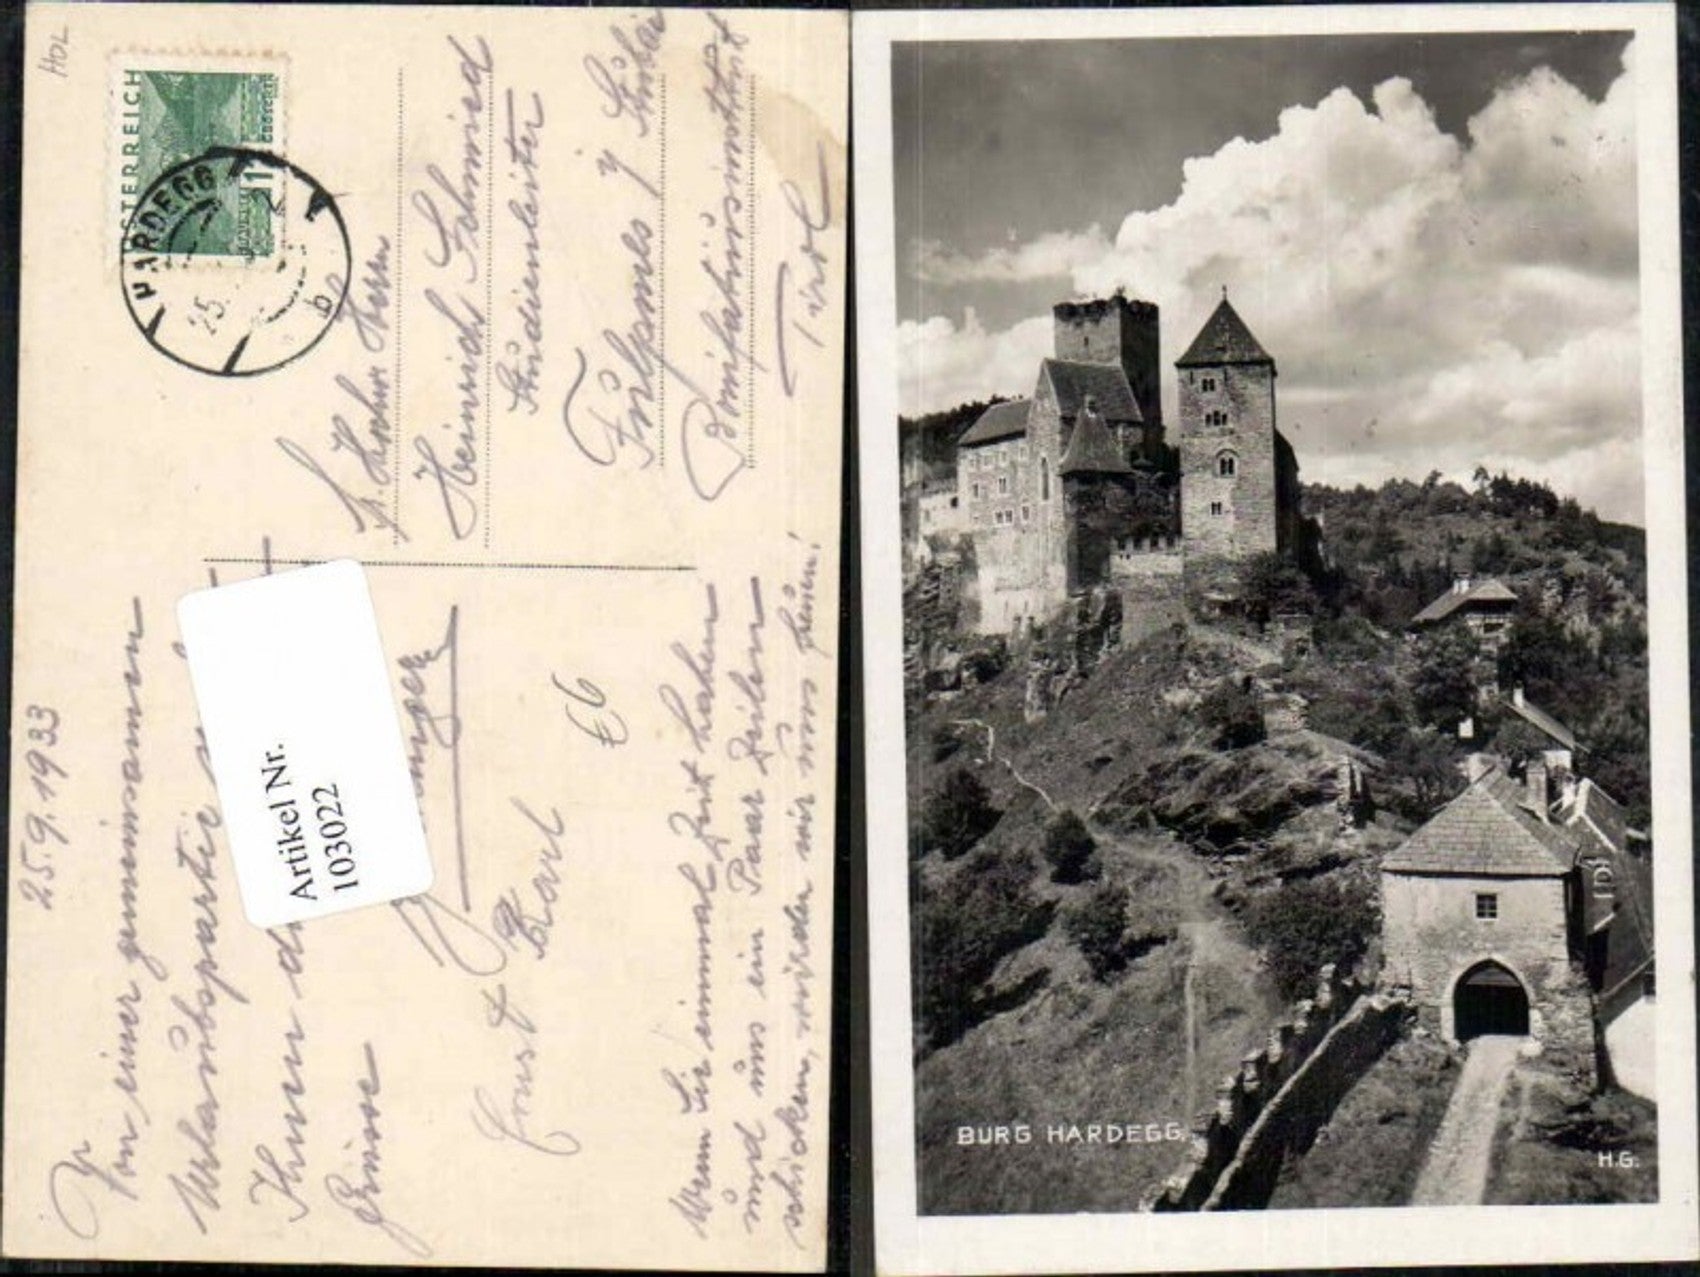 HOL
ÖSTERREICH
HARDEGG
25.
b
Hochw. Herrn
Heinrich Schmied
Studienleiter
Fulpmes / Stubai
Bonifatiusinstitut
Tirol
25.9.1933
Von einer gemeinsamen
Urlaubspartie
Ihnen
Grüsse
Ernst
Karl
€6
Artikel Nr.
103022
Wenn Sie einmal Zeit haben
und uns ein Paar Zeilen
schicken, würden wir uns freuen!
BURG HARDEGG.
H.G.